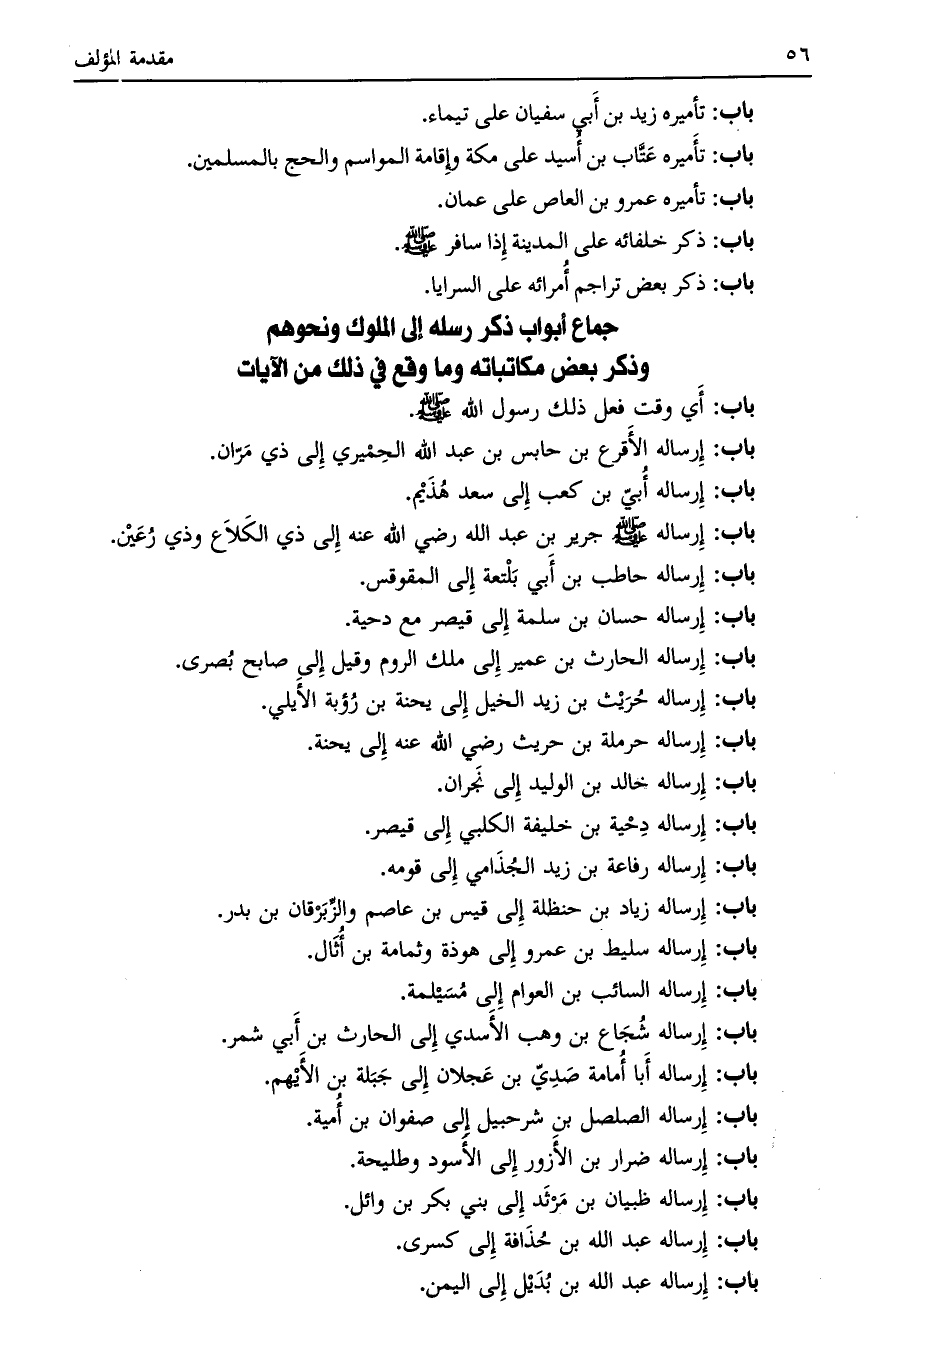 ٥٦ مقدمة المؤلف
باب: تأميره زيد بن أَبي سفيان على تيماء.
باب: تأميره عَتَّاب بن أُسيد على مكة وإقامة المواسم والحج بالمسلمين.
باب: تأميره عمرو بن العاص على عمان.
باب: ذكر خلفائه على المدينة إذا سافر ﷺ.
باب: ذكر بعض تراجم أُمرائه على السرايا.
جماع أبواب ذكر رسله إلى الملوك ونحوهم
وذكر بعض مكاتباته وما وقع في ذلك من الآيات
باب: أَي وقت فعل ذلك رسول الله ﷺ.
باب: إرساله الأَقرع بن حابس بن عبد الله الحِمْيري إلى ذي مَرّان.
باب: إرساله أُبيّ بن كعب إلى سعد هُذَيْم.
باب: إرساله ﷺ جرير بن عبد الله رضي الله عنه إلى ذي الكَلاَع وذي رُعَيْن.
باب: إرساله حاطب بن أَبي بَلْتعة إلى المقوقس.
باب: إرساله حسان بن سلمة إلى قيصر مع دحية.
باب: إرساله الحارث بن عمير إلى ملك الروم وقيل إلى صابح بُصرى.
باب: إرساله حُرَيْث بن زيد الخيل إلى يحنة بن رُؤبة الأَيلي.
باب: إرساله حرملة بن حريث رضي الله عنه إلى يحنة.
باب: إرساله خالد بن الوليد إلى نَجران.
باب: إرساله دِحْية بن خليفة الكلبي إلى قيصر.
باب: إرساله رفاعة بن زيد الجُذَامي إلى قومه.
باب: إرساله زياد بن حنظلة إلى قيس بن عاصم والزِّبَرْقان بن بدر.
باب: إرساله سليط بن عمرو إلى هوذة وثمامة بن أُثَال.
باب: إرساله السائب بن العوام إلى مُسَيْلمة.
باب: إرساله شُجَاع بن وهب الأَسدي إلى الحارث بن أَبي شمر.
باب: إرساله أَبا أُمامة صَدِيّ بن عَجلان إلى جَبَلة بن الأَيْهم.
باب: إرساله الصلصل بن شرحبيل إلى صفوان بن أُمية.
باب: إرساله ضرار بن الأَزور إلى الأَسود وطليحة.
باب: إرساله ظبيان بن مَرْثَد إلى بني بكر بن وائل.
باب: إرساله عبد الله بن حُذَافة إلى كسرى.
باب: إرساله عبد الله بن بُدَيْل إلى اليمن.